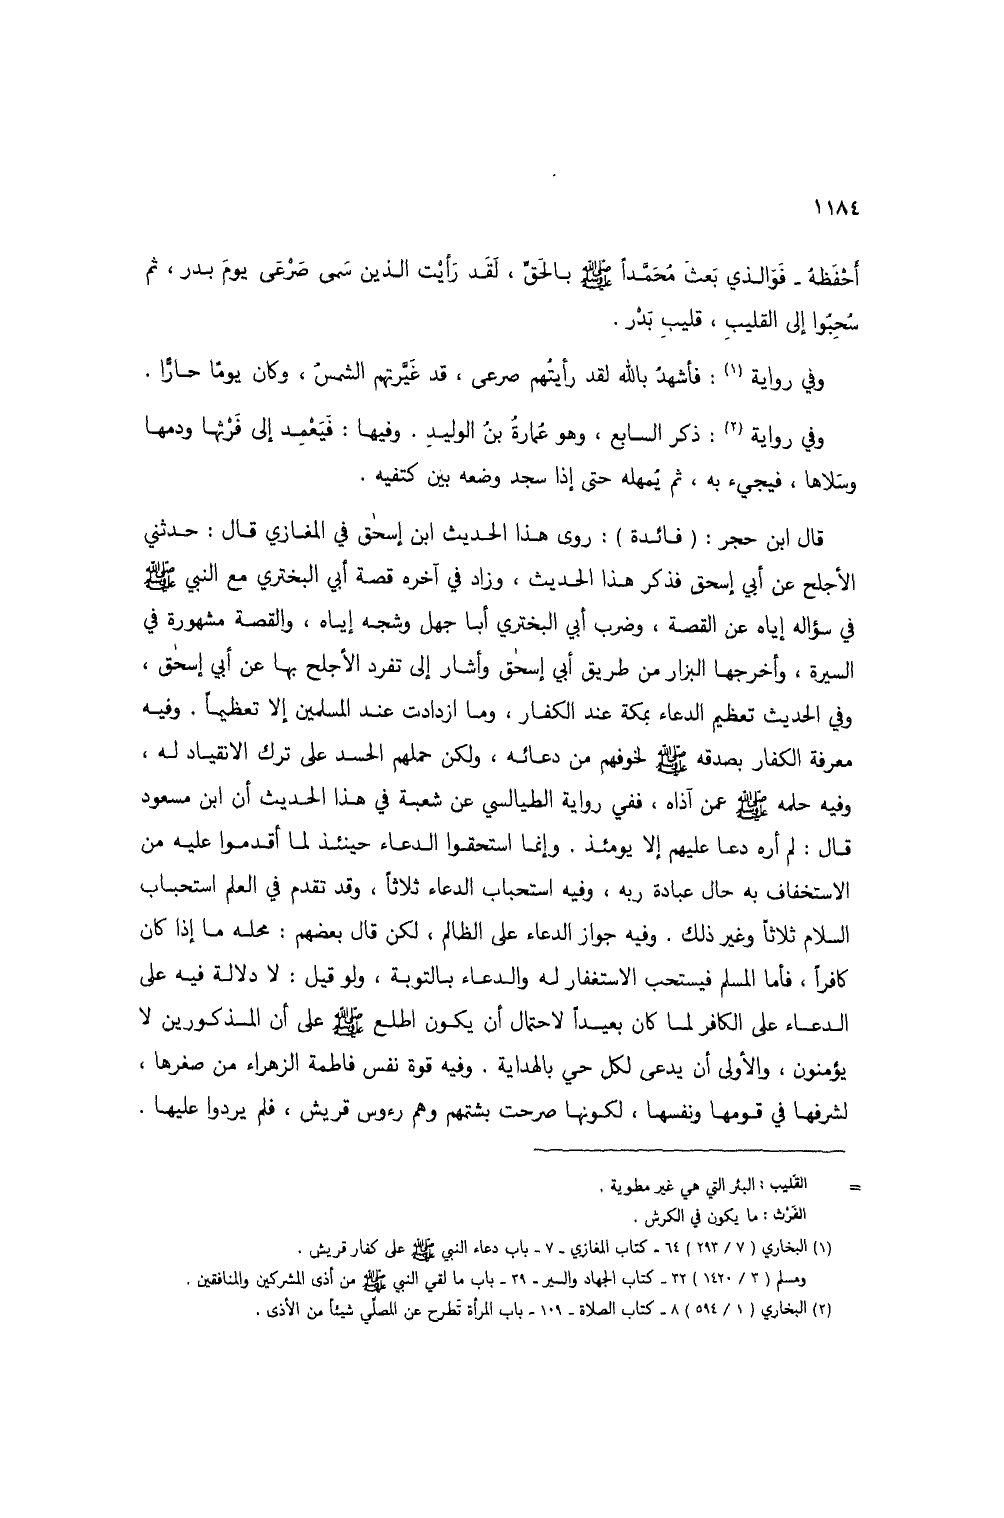 ١١٨٤
أَحْفَظهُ ـ فَوَالـذي بَعثَ مُحَمَّداً ﷺ بـالحَقِّ ، لَقَـد رَأَيْت الـذين سَمى صَرْعَى يومَ بـدر ، ثم
سُحِبُوا إلى القليبِ ، قليبِ بَدْر .
وفي رواية (١) : فأشهدُ بالله لقد رأيتُهم صرعى ، قد غَيَّرتهم الشمسُ ، وكان يومًا حـارًّا .
وفي رواية (٢) : ذكر السـابع ، وهو عُمارةُ بنُ الوليـدِ . وفيهـا : فَيَعْمِـد إلى فَرْثِهـا ودمهـا
وسَلاها ، فيجيء به ، ثم يُمهله حتى إذا سجد وضعه بين كتفيه .
قال ابن حجر : ( فـائـدة ) : روى هـذا الحـديث ابن إسحٰق في المغـازي قـال : حـدثني
الأجلح عن أبي إسحق فذكر هـذا الحـديث ، وزاد في آخره قصـة أبي البختري مع النبي ﷺ
في سؤاله إياه عن القصة ، وضرب أبي البختري أبـا جهل وشجـه إيـاه ، والقصـة مشهورة في
السيرة ، وأخرجهـا البزار من طريق أبي إسحٰق وأشـار إلى تفرد الأجلح بهـا عن أبي إسحٰق ،
وفي الحديث تعظيم الدعاء بمكة عند الكفـار ، ومـا ازدادت عنـد المسلمين إلا تعظيمـاً . وفيـه
معرفة الكفار بصدقه ﷺ لخوفهم من دعـائـه ، ولكن حملهم الحسـد على ترك الانقيـاد لـه ،
وفيه حلمه ﷺ عمن آذاه ، ففي رواية الطيالسي عن شعبـة في هـذا الحـديث أن ابن مسعود
قـال : لم أره دعـا عليهم إلا يومئـذ . وإنمـا استحقـوا الـدعـاء حينئـذ لمـا أقـدمـوا عليـه من
الاستخفاف به حال عبادة ربه ، وفيه استحباب الدعاء ثلاثاً ، وقد تقدم في العلم استحبـاب
السلام ثلاثاً وغير ذلك . وفيه جواز الدعاء على الظالم ، لكن قال بعضهم : محلـه مـا إذا كان
كافراً ، فأما المسلم فيستحب الاستغفار لـه والـدعـاء بـالتوبـة ، ولو قيل : لا دلالـة فيـه على
الـدعـاء على الكافر لمـا كان بعيـداً لاحتمال أن يكـون اطلـع ﷺ على أن المـذكـورين لا
يؤمنون ، والأولى أن يدعى لكل حي بالهداية . وفيه قوة نفس فاطمة الزهراء من صغرها ،
لشرفهـا في قـومهـا ونفسهـا ، لكـونهـا صرحت بشتمهم وهم رءوس قريش ، فلم يردوا عليهـا .
= القَليب : البئر التي هي غير مطوية .
الفَرْث : ما يكون في الكرش .
(١) البخاري ( ٧ / ٢٩٣ ) ٦٤ ـ كتاب المغازي ـ ٧ ـ باب دعاء النبي ﷺ على كفار قريش .
ومسلم ( ٣ / ١٤٢٠ ) ٣٢ ـ كتاب الجهاد والسير ـ ٣٩ ـ باب ما لقي النبي ﷺ من أذى المشركين والمنافقين .
(٢) البخاري ( ١ / ٥٩٤ ) ٨ ـ كتاب الصلاة ـ ١٠٩ ـ باب المرأة تَطرح عن المصلِّي شيئاً من الأذى .